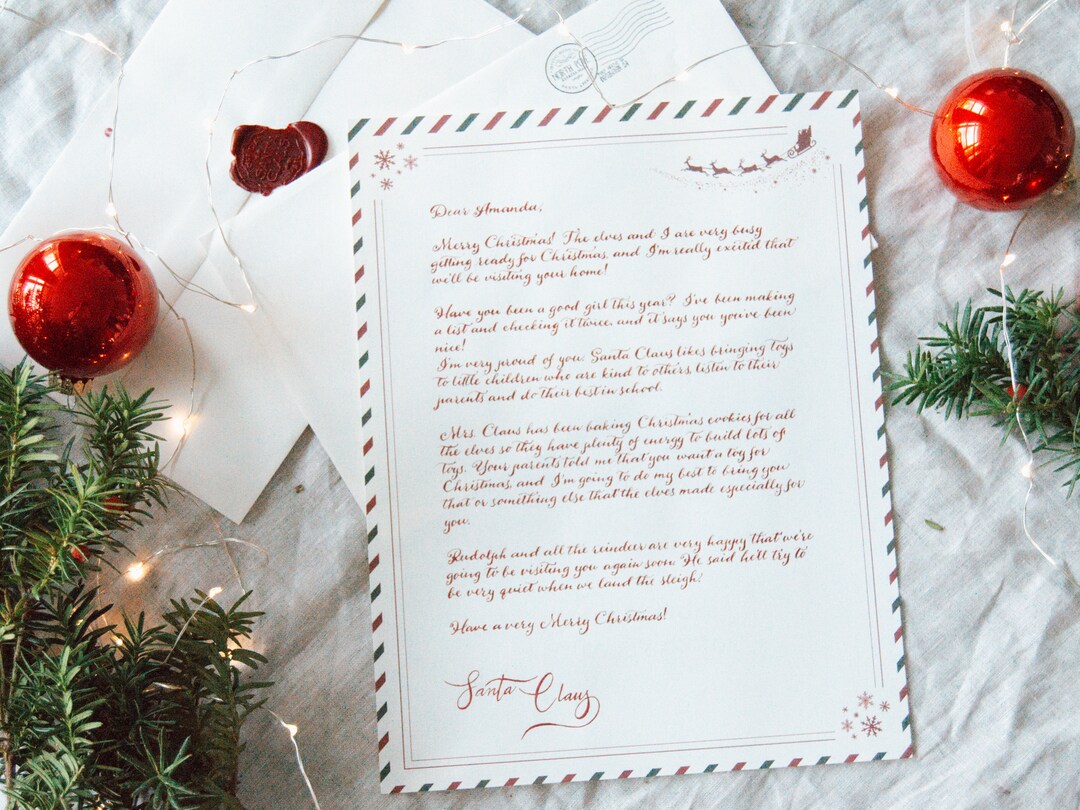 NORTH POLE
Dear Amanda,
Merry Christmas! The elves and I are very busy
getting ready for Christmas, and I'm really excited that
we'll be visiting your home!
Have you been a good girl this year? I've been making
a list and checking it twice, and it says you you've been
nice!
I'm very proud of you. Santa Claus likes bringing toys
to little children who are kind to others, listen to their
parents and do their best in school.
Mrs. Claus has been baking Christmas cookies for all
the elves so they have plenty of energy to build lots of
toys. Your parents told me that you want a toy for
Christmas, and I'm going to do my best to bring you
that or something else that the elves made especially for
you.
Rudolph and all the reindeer are very happy that we're
going to be visiting you again soon. He said he'll try to
be very quiet when we land the sleigh!
Have a very Merry Christmas!
Santa Claus